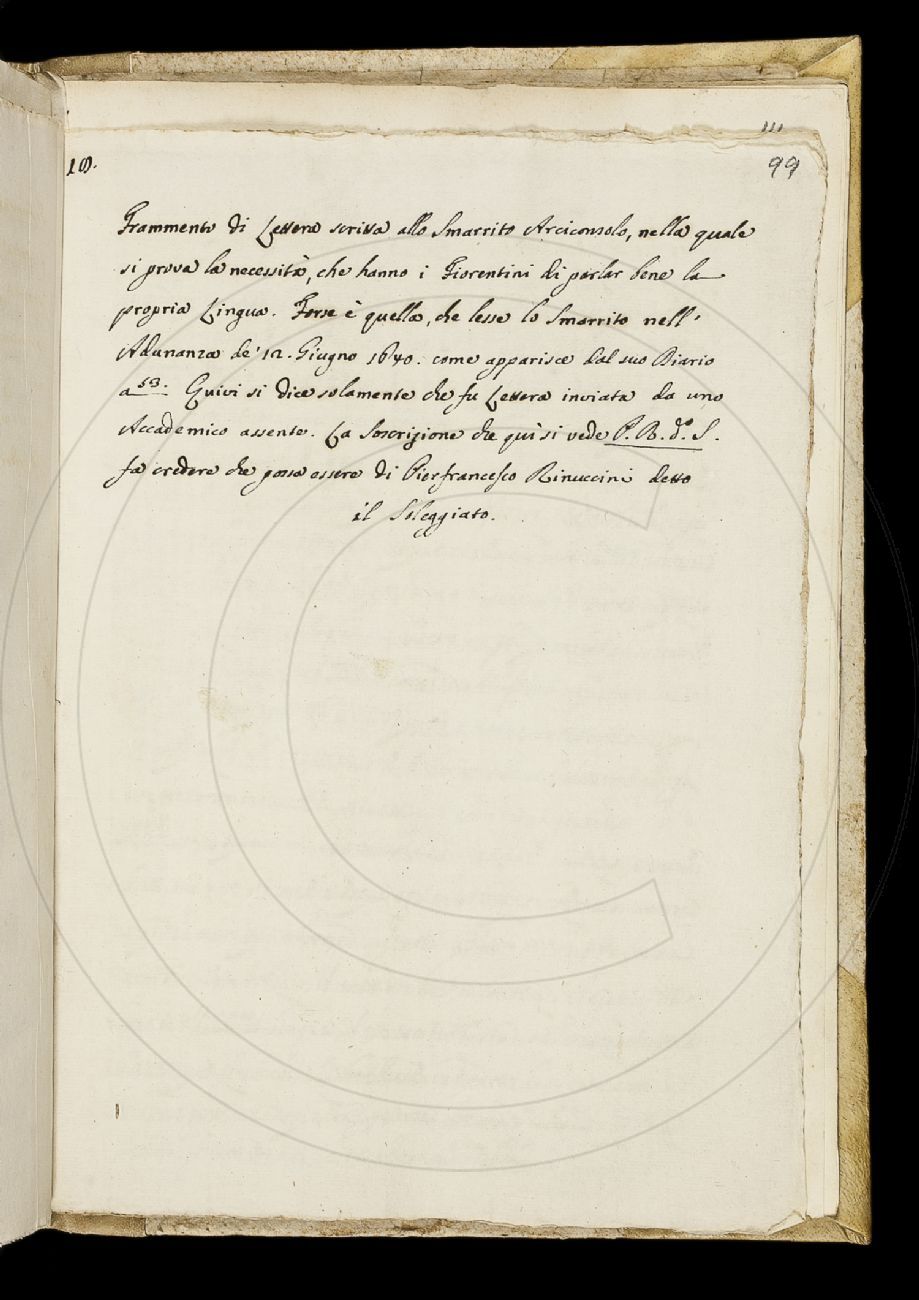 111
19.
99
Frammento di Lettera scritta allo Smarrito Arciconsolo, nella quale
si prova la necessità, che hanno i Fiorentini di parlar bene la
propria Lingua. Forse è quella, che lesse lo Smarrito nell'
Adunanza de' 12. Giugno 1640. come apparisce dal suo Diario
a 53. Quivi si dice solamente che fu Lettera inviata da uno
Accademico assente. La Soscrizione che quì si vede P. R. d.º S.
fa credere che possa essere di Pierfrancesco Rinuccini detto
il Soleggiato.